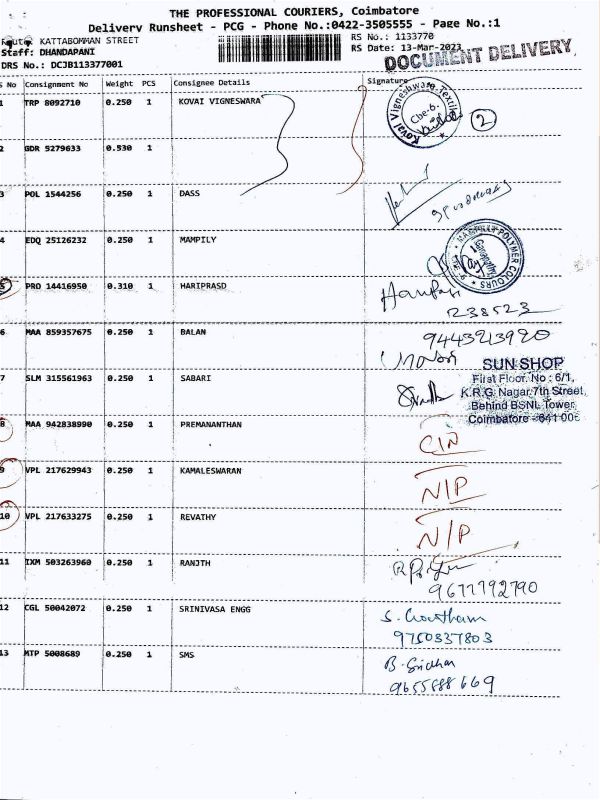 THE PROFESSIONAL COURIERS, Coimbatore
Delivery Runsheet - PCG - Phone No.:0422-3505555 - Page No.:1
Route: KATTABOMMAN STREET
RS No.: 1133770
Staff: DHANDAPANI
RS Date: 13-Mar-2023
DOCUMENT DELIVERY
DRS No.: DCJB113377001
S No Consignment No Weight PCS Consignee Details Signature
1 TRP 8092710 0.250 1 KOVAI VIGNESWARA
Kovai Vigneshwara Textiles
Cbe-6.
2
2 GDR 5279633 0.530 1
3 POL 1544256 0.250 1 DASS
4 EDQ 25126232 0.250 1 MAMPILY
MAMPILLY POLYMER COLOURS
5 PRO 14416950 0.310 1 HARIPRASD
238523
6 MAA 859357675 0.250 1 BALAN
9443213920
7 SLM 315561963 0.250 1 SABARI
SUN SHOP
First Floor. No : 6/1,
K.R.G. Nagar 7th Street,
Behind BSNL Tower
Coimbatore - 641 006
8 MAA 942838990 0.250 1 PREMANANTHAN
C/N
9 VPL 217629943 0.250 1 KAMALESWARAN
N/P
10 VPL 217633275 0.250 1 REVATHY
N/P
11 IXM 503263960 0.250 1 RANJTH
9677792790
12 CGL 50042072 0.250 1 SRINIVASA ENGG
S. Gowtham
9750337803
13 MTP 5008689 0.250 1 SMS
B. Sridhar
9655588669